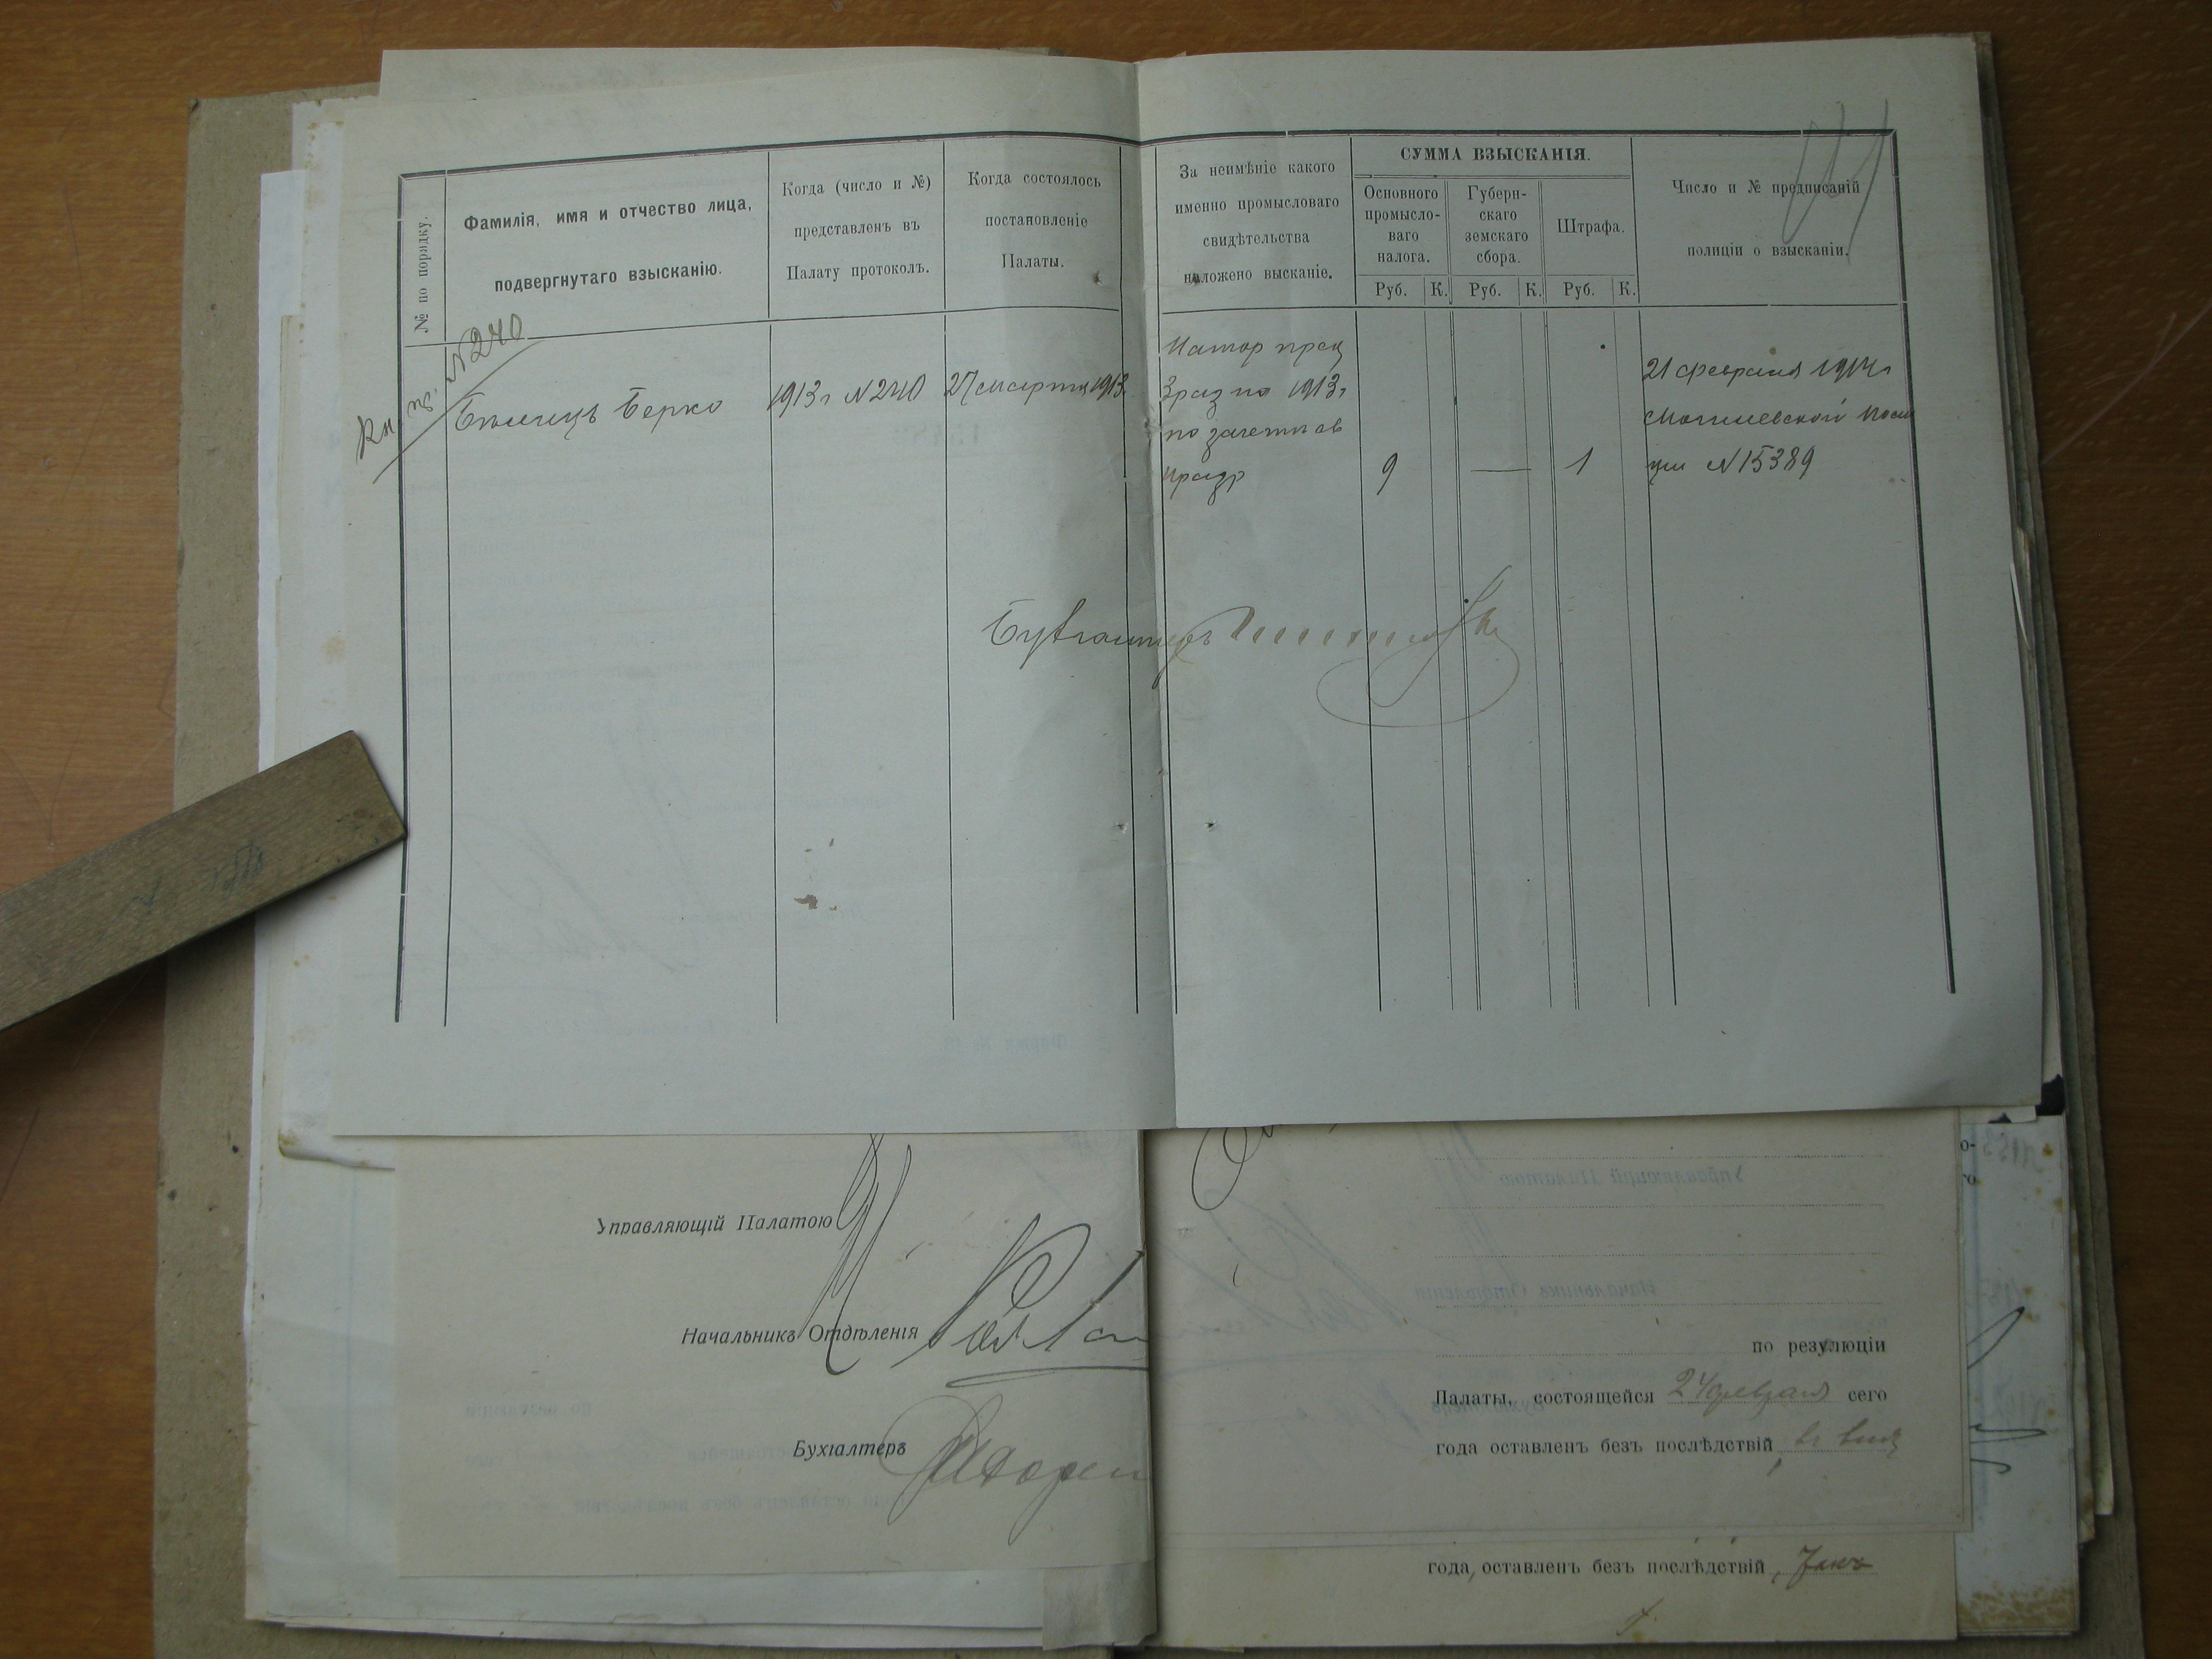 № по порядку.
Фамилія, имя и отчество лица,
подвергнутаго взысканію.
Когда (число и №)
представленъ въ
Палату протоколъ.
Когда состоялось
постановленіе
Палаты.
За неимѣніе какого
именно промысловаго
свидѣтельства
наложено высканіе.
СУММА ВЗЫСКАНІЯ.
Основного
промысло-
ваго
налога.
Губерн-
скаго
земскаго
сбора.
Штрафа.
Руб. К. Руб. К. Руб. К.
Число и № предписаній
полиціи о взысканіи.
Кн. пр. №240
Берко
1913г №240
27 марта 1913
3 раз на 1913г
по
9 — 1
21 февраля 1914г
Могилевской Поли
ціи №15389
Бухгалтеръ
Управляющій Палатою
Начальникъ Отдѣленія
Бухгалтеръ
по резулюціи
Палаты, состоящейся 24 февраля сего
года оставленъ безъ послѣдствій,
года, оставленъ безъ послѣдствій,